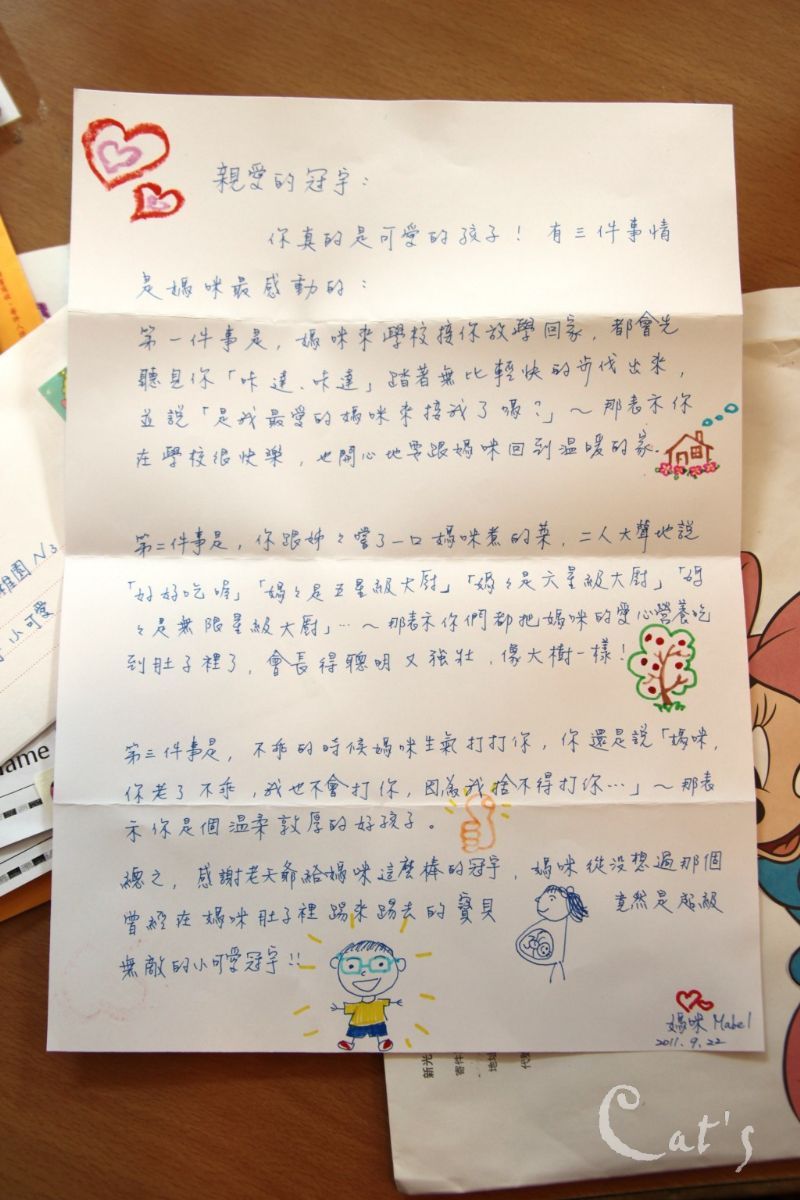 親愛的冠宇：
你真的是可愛的孩子！有三件事情
是媽咪最感動的：
第一件事是，媽咪來學校接你放學回家，都會先
聽見你「咔達、咔達」踏著無比輕快的步伐出來，
並說「是我最愛的媽咪來接我了嗎？」～那表示你
在學校很快樂，也開心地要跟媽咪回到溫暖的家。
第二件事是，你跟姊々嚐了一口媽咪煮的菜，二人大聲地說
「好好吃喔」「媽々是五星級大廚」「媽々是六星級大廚」「媽
々是無限星級大廚」…～那表示你們都把媽咪的愛心營養吃
到肚子裡了，會長得聰明又強壯，像大樹一樣！
第三件事是，不乖的時候媽咪生氣打打你，你還是說「媽咪，
你老了不乖，我也不會打你，因為我捨不得打你…」～那表
示你是個溫柔敦厚的好孩子。
總之，感謝老天爺給媽咪這麼棒的冠宇，媽咪從沒想過那個
曾經在媽咪肚子裡踢來踢去的寶貝 竟然是超級
無敵的小可愛冠宇!!
媽咪 Mabel
2011.9.22
稚園 N3
小可愛
ame
新光
寄件
地址
Cat's